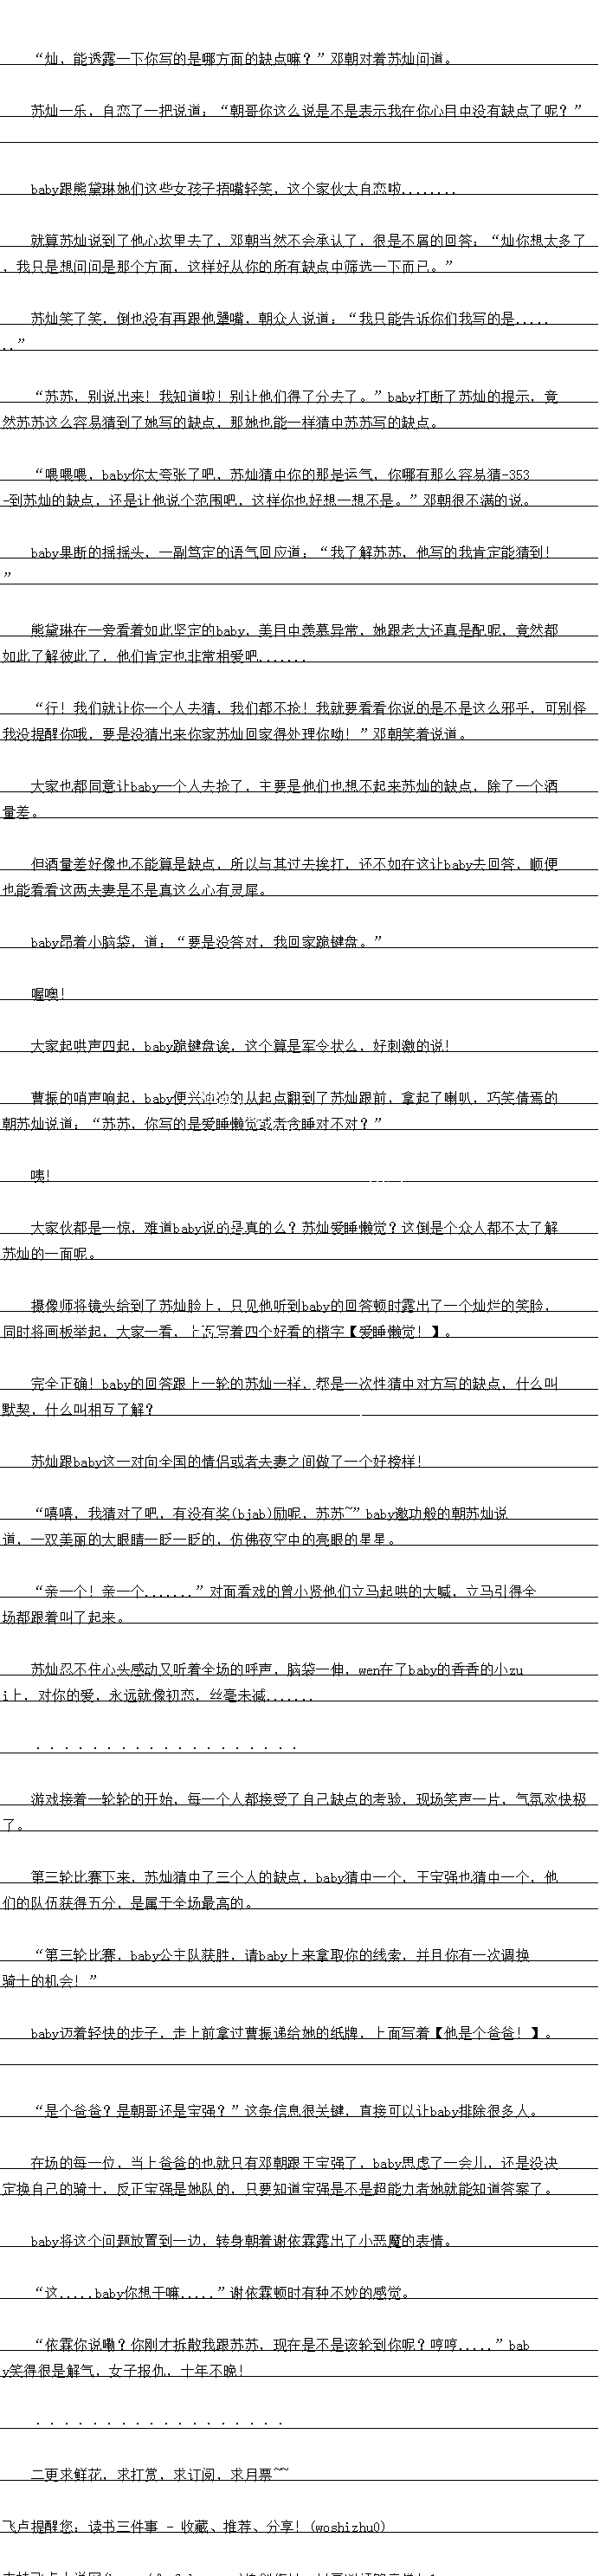 “灿，能透露一下你写的是哪方面的缺点嘛？”邓朝对着苏灿问道。
苏灿一乐，自恋了一把说道：“朝哥你这么说是不是表示我在你心目中没有缺点了呢？”
baby跟熊黛琳她们这些女孩子捂嘴轻笑，这个家伙太自恋啦........
就算苏灿说到了他心坎里去了，邓朝当然不会承认了，很是不屑的回答：“灿你想太多了
，我只是想问问是那个方面，这样好从你的所有缺点中筛选一下而已。”
苏灿笑了笑，倒也没有再跟他犟嘴，朝众人说道：“我只能告诉你们我写的是.....
..”
“苏苏，别说出来！我知道啦！别让他们得了分去了。”baby打断了苏灿的提示，竟
然苏苏这么容易猜到了她写的缺点，那她也能一样猜中苏苏写的缺点。
“喂喂喂，baby你太夸张了吧，苏灿猜中你的那是运气，你哪有那么容易猜-353
-到苏灿的缺点，还是让他说个范围吧，这样你也好想一想不是。”邓朝很不满的说。
baby果断的摇摇头，一副笃定的语气回应道：“我了解苏苏，他写的我肯定能猜到！
”
熊黛琳在一旁看着如此坚定的baby，美目中羡慕异常，她跟老大还真是配呢，竟然都
如此了解彼此了，他们肯定也非常相爱吧.......
“行！我们就让你一个人去猜，我们都不抢！我就要看看你说的是不是这么邪乎，可别怪
我没提醒你哦，要是没猜出来你家苏灿回家得处理你呦！”邓朝笑着说道。
大家也都同意让baby一个人去抢了，主要是他们也想不起来苏灿的缺点，除了一个酒
量差。
但酒量差好像也不能算是缺点，所以与其过去挨打，还不如在这让baby去回答，顺便
也能看看这两夫妻是不是真这么心有灵犀。
baby昂着小脑袋，道：“要是没答对，我回家跪键盘。”
喔噢！
大家起哄声四起，baby跪键盘诶，这个算是军令状么，好刺激的说！
曹振的哨声响起，baby便兴冲冲的从起点翻到了苏灿跟前，拿起了喇叭，巧笑倩焉的
朝苏灿说道：“苏苏，你写的是爱睡懒觉或者贪睡对不对？”
咦！
大家伙都是一惊，难道baby说的是真的么？苏灿爱睡懒觉？这倒是个众人都不太了解
苏灿的一面呢。
摄像师将镜头给到了苏灿脸上，只见他听到baby的回答顿时露出了一个灿烂的笑脸，
同时将画板举起，大家一看，上面写着四个好看的楷字【爱睡懒觉！】。
完全正确！baby的回答跟上一轮的苏灿一样，都是一次性猜中对方写的缺点，什么叫
默契，什么叫相互了解？
苏灿跟baby这一对向全国的情侣或者夫妻之间做了一个好榜样！
“嘻嘻，我猜对了吧，有没有奖(bjab)励呢，苏苏~”baby邀功般的朝苏灿说
道，一双美丽的大眼睛一眨一眨的，仿佛夜空中的亮眼的星星。
“亲一个！亲一个.......”对面看戏的曾小贤他们立马起哄的大喊，立马引得全
场都跟着叫了起来。
苏灿忍不住心头感动又听着全场的呼声，脑袋一伸，wen在了baby的香香的小zu
i上，对你的爱，永远就像初恋，丝毫未减.......
...................
游戏接着一轮轮的开始，每一个人都接受了自己缺点的考验，现场笑声一片，气氛欢快极
了。
第三轮比赛下来，苏灿猜中了三个人的缺点，baby猜中一个，王宝强也猜中一个，他
们的队伍获得五分，是属于全场最高的。
“第三轮比赛，baby公主队获胜，请baby上来拿取你的线索，并且你有一次调换
骑士的机会！”
baby迈着轻快的步子，走上前拿过曹振递给她的纸牌，上面写着【他是个爸爸！】。
“是个爸爸？是朝哥还是宝强？”这条信息很关键，直接可以让baby排除很多人。
在场的每一位，当上爸爸的也就只有邓朝跟王宝强了，baby思虑了一会儿，还是没决
定换自己的骑士，反正宝强是她队的，只要知道宝强是不是超能力者她就能知道答案了。
baby将这个问题放置到一边，转身朝着谢依霖露出了小恶魔的表情。
“这.....baby你想干嘛.....”谢依霖顿时有种不妙的感觉。
“依霖你说嘞？你刚才拆散我跟苏苏，现在是不是该轮到你呢？哼哼.....”bab
y笑得很是解气，女子报仇，十年不晚！
..................
二更求鲜花，求打赏，求订阅，求月票~~
飞卢提醒您：读书三件事 - 收藏、推荐、分享！(woshizhu0)